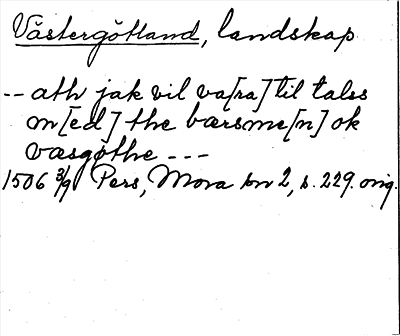 Västergötland, landskap
-- ath jak vil va[ra] til tals
m[ed] the bærsme[n] ok
væsgøthe ---
1506 3/9 Pers, Mora bn 2, s. 229. orig.